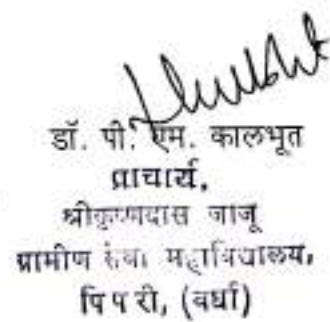 डॉ. पी. एम. कालभूत
प्राचार्य,
श्रीकृष्णदास जाजू
ग्रामीण सेवा महाविद्यालय,
पिपरी, (वर्धा)